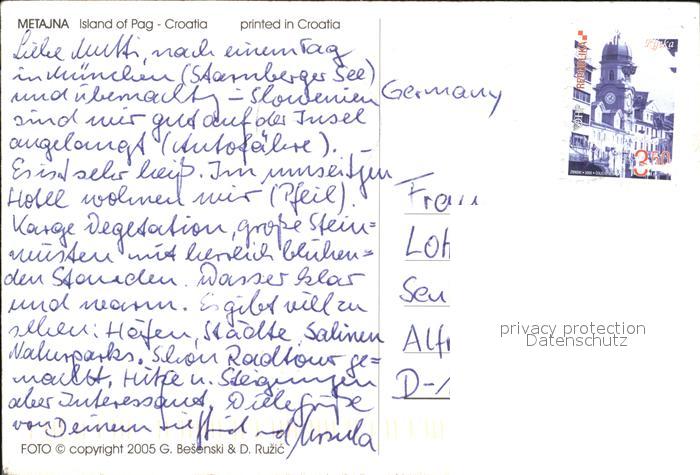 METAJNA Island of Pag - Croatia printed in Croatia
Liebe Mutti, nach einem Tag
in München (Starnberger See)
und übernachtg in Slowenien
sind wir gut auf der Insel
angelangt (Autofähre).
Es ist sehr heiß. Im umseitgen
Hotel wohnen wir (Pfeil).
Karge Vegetation, große Stein=
wüsten mit herrlich blühen=
den Stauden. Wasser klar
und warm. Es gibt viel zu
sehen: Häfen, Städte, Salinen
Naturparks. Schon Radtour ge=
macht. Hitze u. Steigungen
aber Interessant. Viele Grüße
von Deinem und Ursula
FOTO © copyright 2005 G. Bešenski & D. Ružić
Germany
Frau
Loh
Sen
Alfr
D-
REPUBLIKA
Rijeka
3,50
privacy protection
Datenschutz